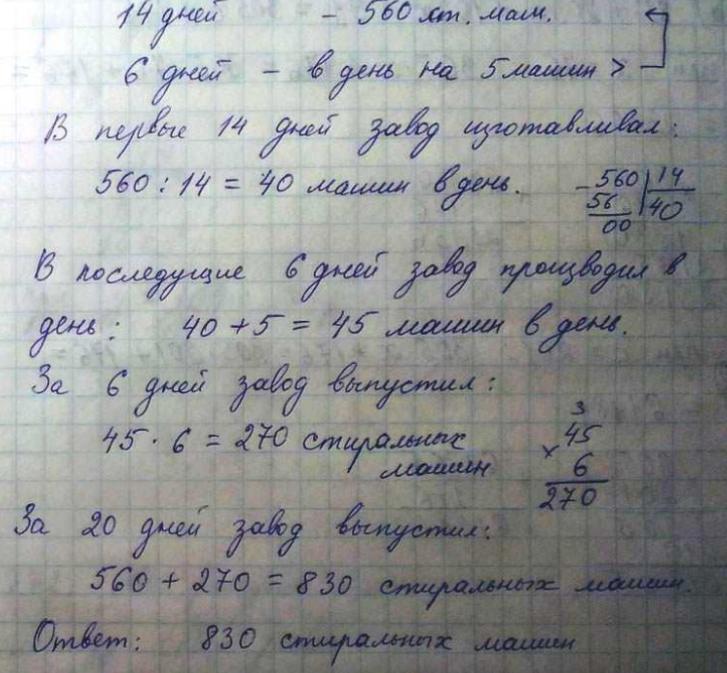 14 дней - 560 ст. маш.
6 дней - в день на 5 машин >
В первые 14 дней завод изготавливал:
560 : 14 = 40 машин в день.
- 560 | 14
56 40
00
В последущие 6 дней завод производил в
день: 40 + 5 = 45 машин в день.
За 6 дней завод выпустил:
45 · 6 = 270 стиральных
машин
3
45
× 6
270
За 20 дней завод выпустил:
560 + 270 = 830 стиральных машин.
Ответ: 830 стиральных машин